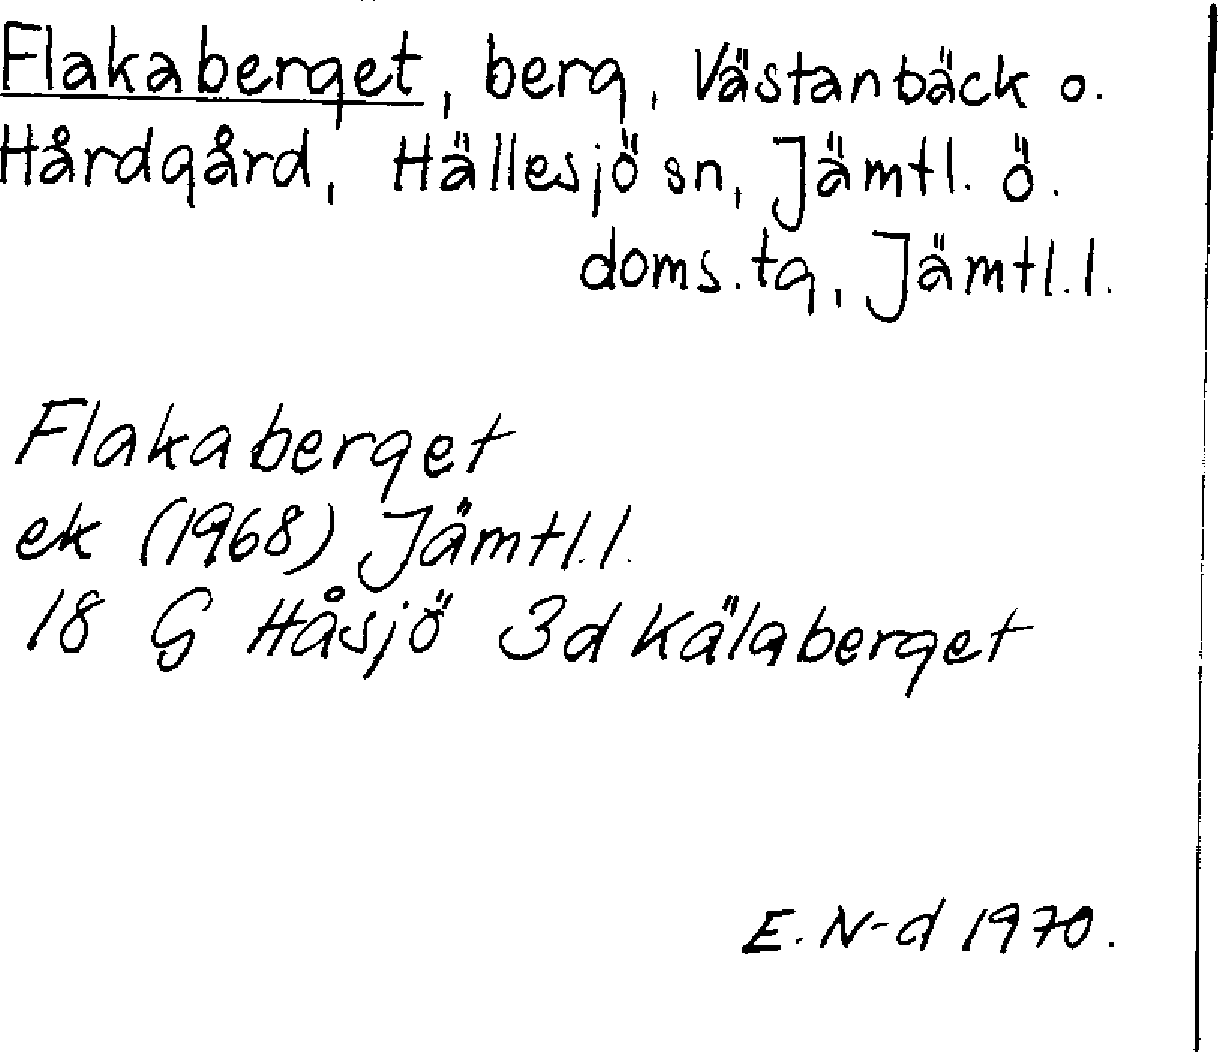 Flakaberget, berg, Västanbäck o.
Hårdgård, Hällesjö sn, Jämtl. ö.
doms. tg, Jämtl. l.
Flakaberget
ek (1968) Jämtl. l.
18 G Håsjö 3d Kälaberget
E. N-d 1970.